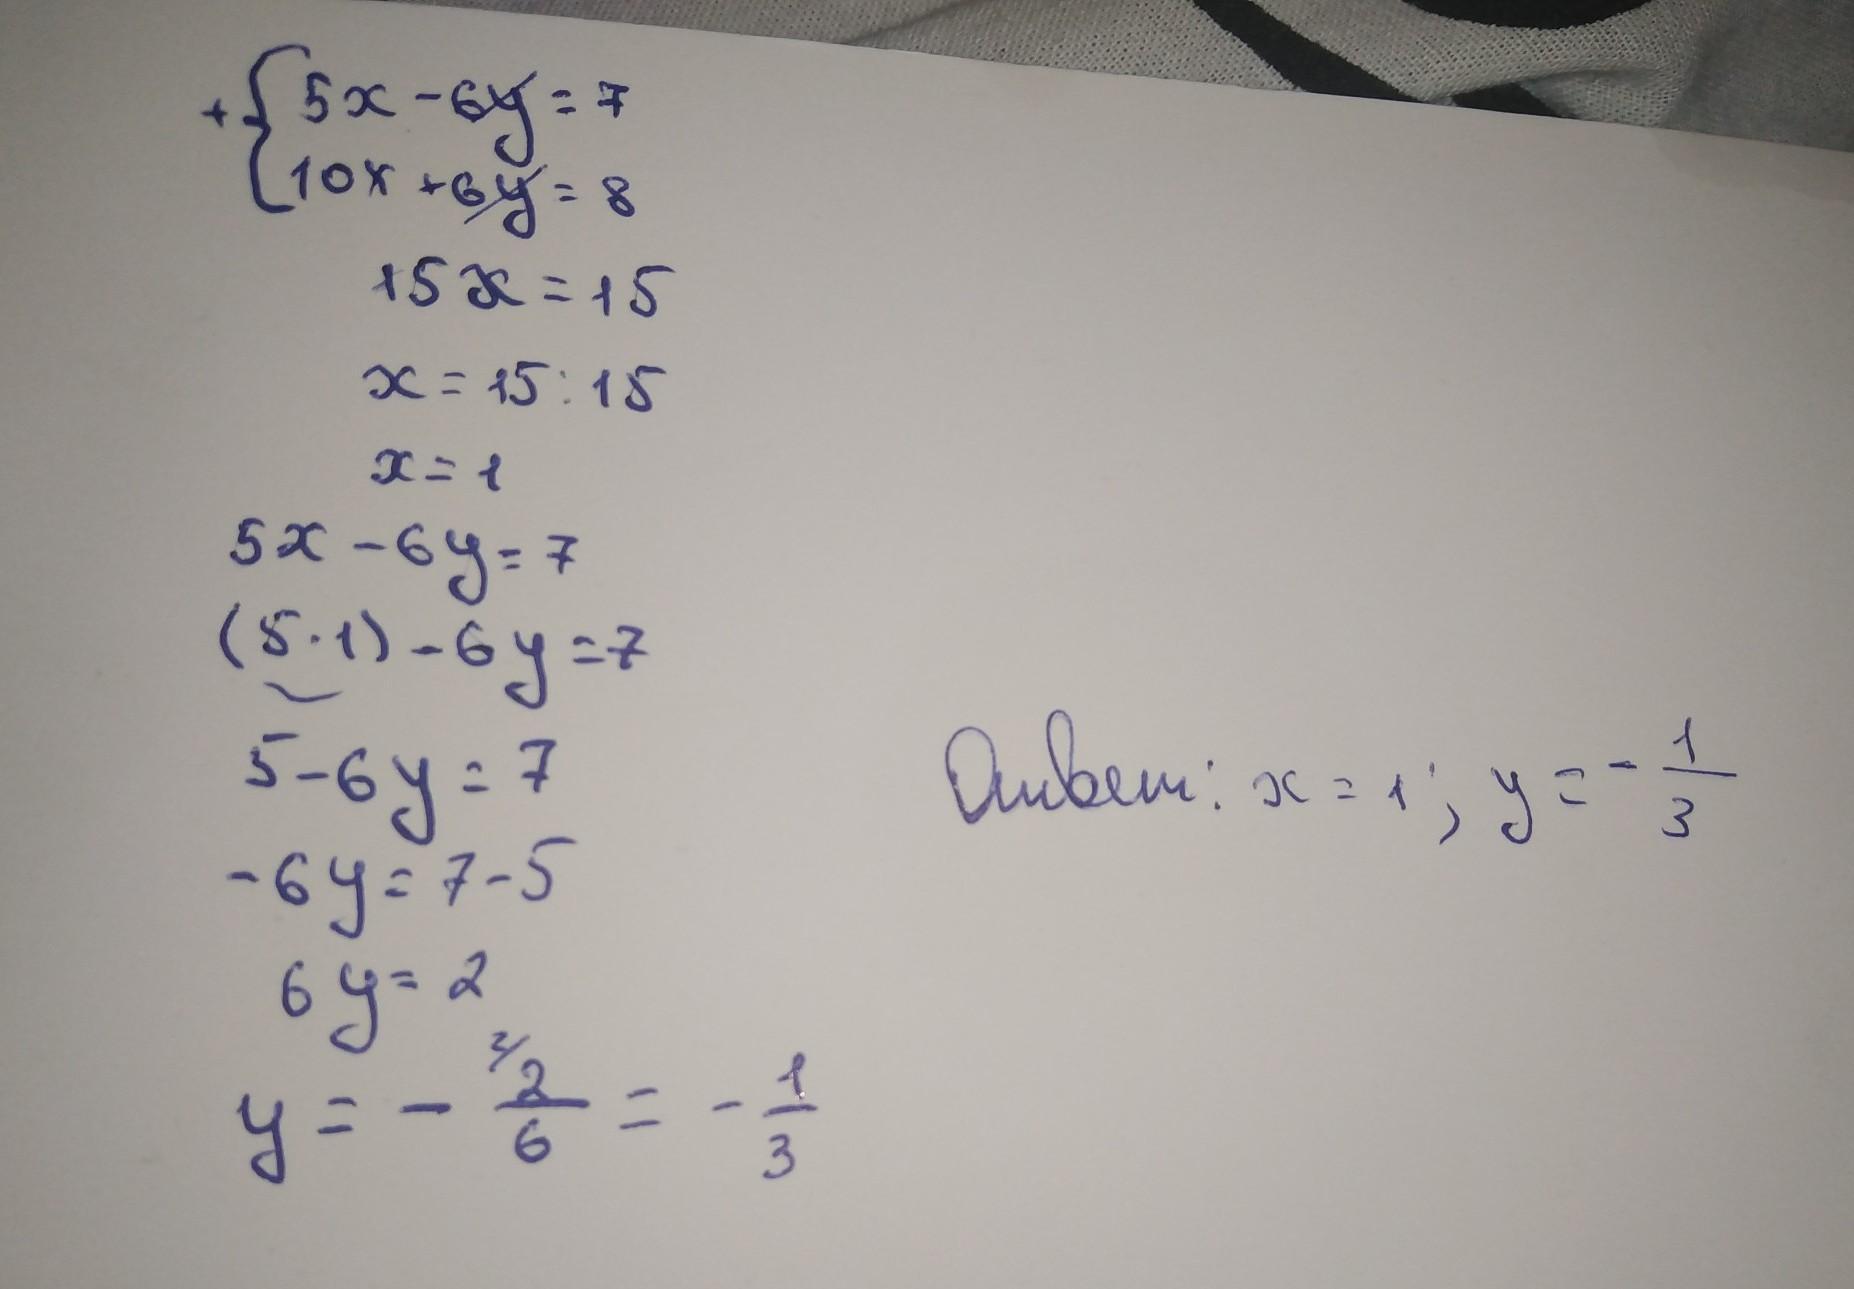 +{5x-6y=7
10x+6y=8
15x=15
x=15:15
x=1
5x-6y=7
(5·1)-6y=7
5-6y=7
-6y=7-5
6y=2
y=-2/6=-1/3
Ответ: x=1; y=-1/3